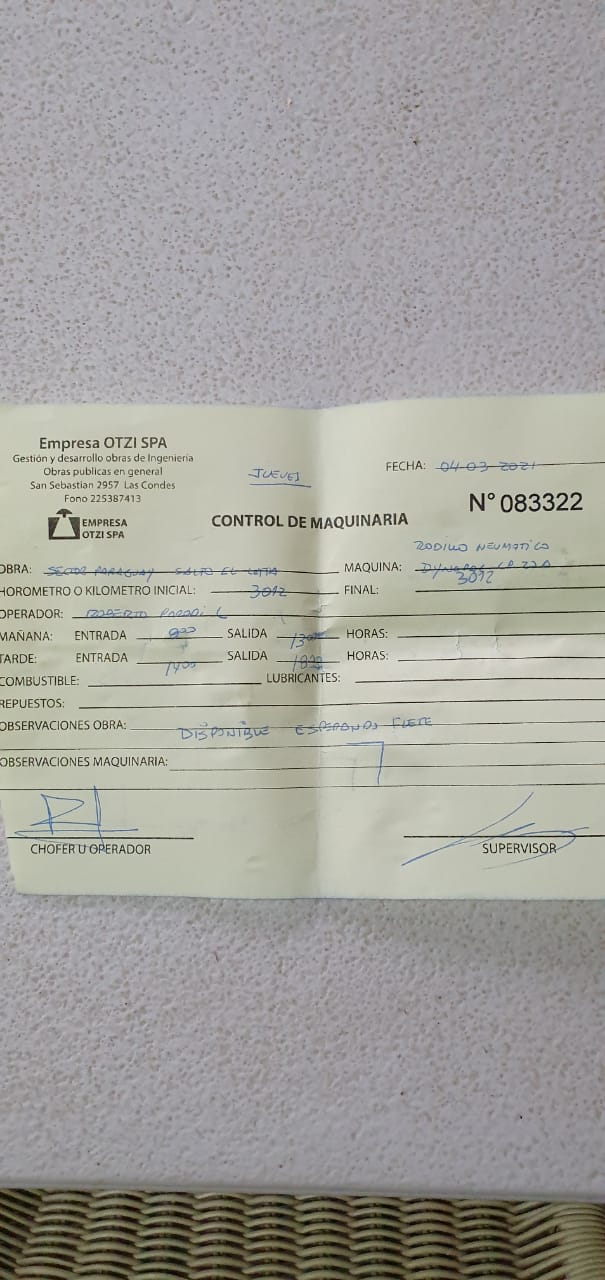 Empresa OTZI SPA
Gestión y desarrollo obras de Ingenieria
Obras publicas en general
San Sebastian 2957 Las Condes
Fono 225387413
EMPRESA
OTZI SPA
JUEVES
FECHA: 04-03-2021
N° 083322
CONTROL DE MAQUINARIA
RODILLO NEUMATICO
OBRA: SECTOR PARAGUAY SALTO EL MAQUINA: DYNAPAC CP 220
HOROMETRO O KILOMETRO INICIAL: 3012 FINAL: 3012
OPERADOR: ROBERTO L
MAÑANA: ENTRADA 800 SALIDA 1300 HORAS:
TARDE: ENTRADA 1400 SALIDA HORAS:
COMBUSTIBLE: LUBRICANTES:
REPUESTOS:
OBSERVACIONES OBRA: DISPONIBLE ESPERANDO FLETE
OBSERVACIONES MAQUINARIA:
CHOFER U OPERADOR SUPERVISOR